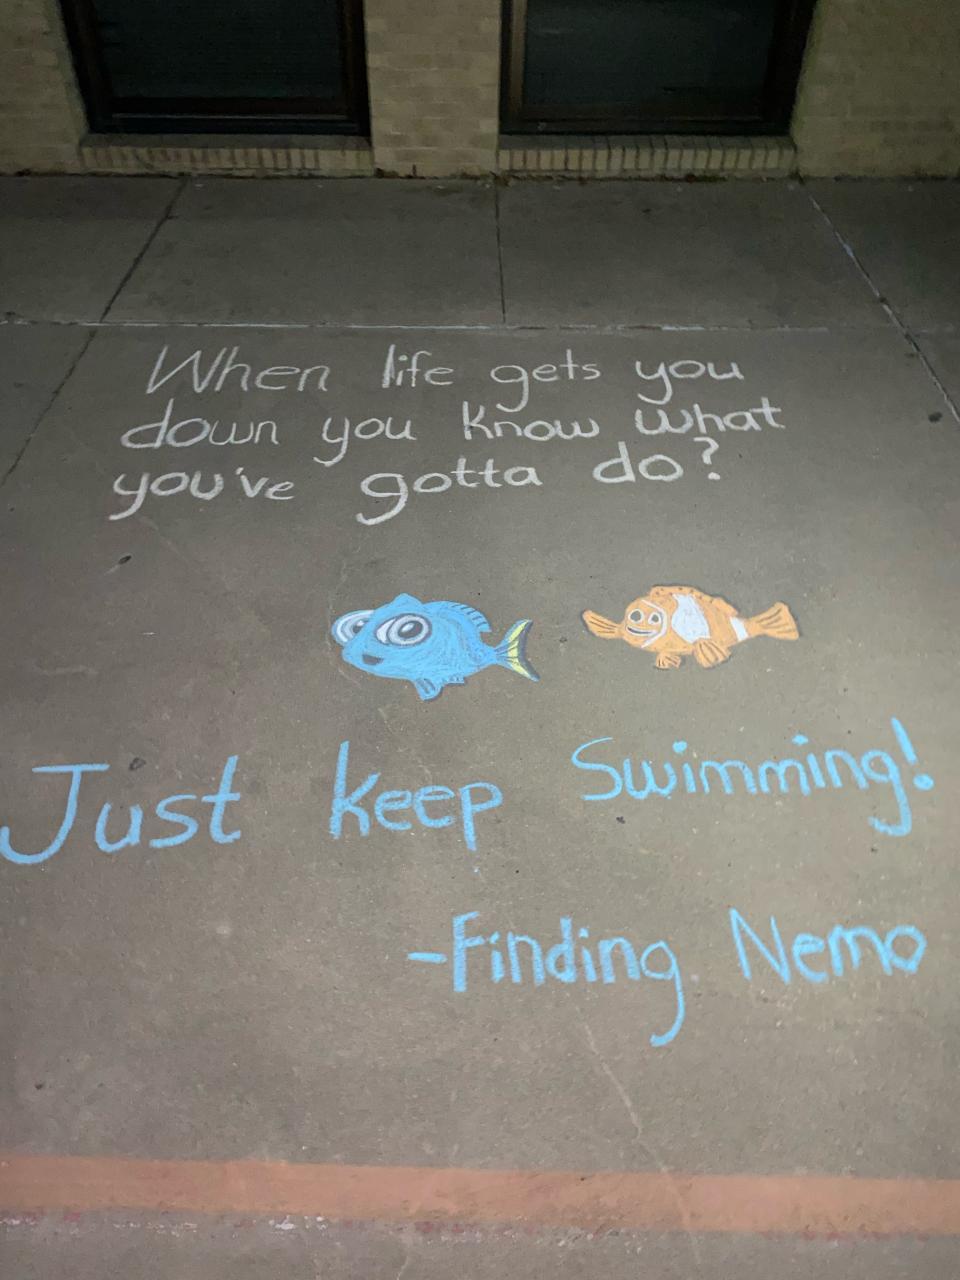 When life gets you
down you know what
you've gotta do?
Just keep Swimming!
-Finding Nemo